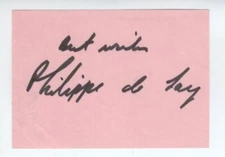 best wishes
Philippe de Lacy